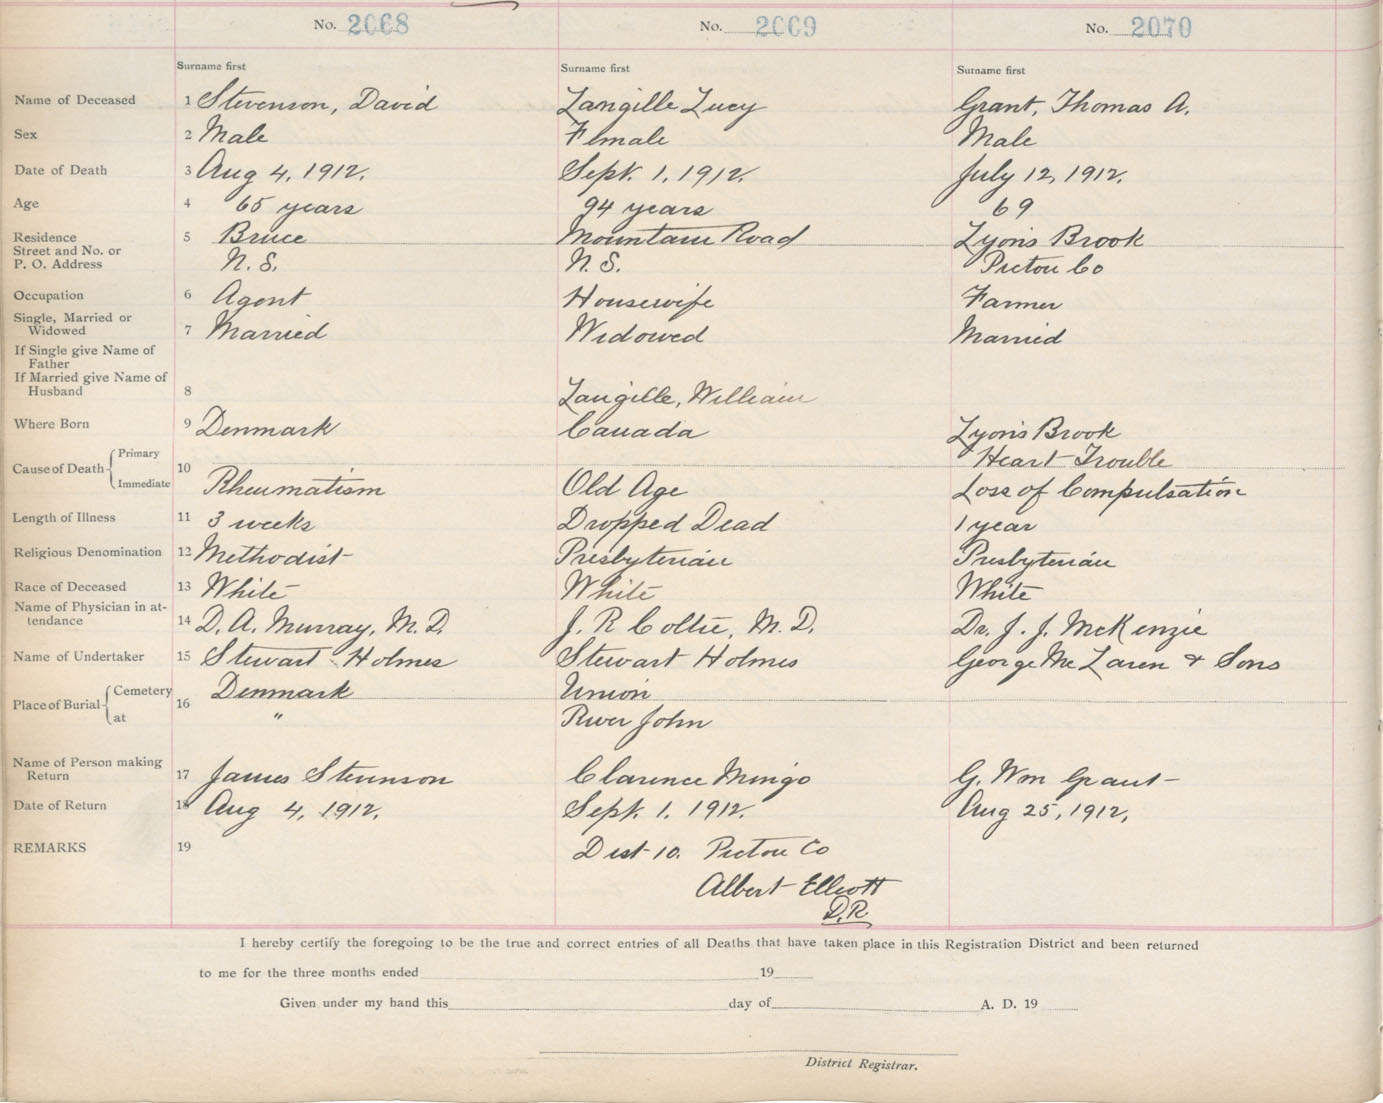 No. 2068 No. 2069 No. 2070
Surname first Surname first Surname first
Name of Deceased 1 Stevenson, David Langille Lucy Grant, Thomas A.
Sex 2 Male Female Male
Date of Death 3 Aug 4, 1912. Sept. 1, 1912. July 12, 1912.
Age 4 65 years 94 years 69
Residence 5 Bruce Mountain Road Lyons Brook
Street and No. or
P. O. Address N. S. N. S. Pictou Co
Occupation 6 Agent Housewife Farmer
Single, Married or
Widowed 7 Married Widowed Married
If Single give Name of
Father
If Married give Name of
Husband 8 Langille, William
Where Born 9 Denmark Canada Lyons Brook
Cause of Death Primary 10 Heart Trouble
Immediate Rheumatism Old Age Loss of Compulsation
Length of Illness 11 3 weeks Dropped Dead 1 year
Religious Denomination 12 Methodist Presbyterian Presbyterian
Race of Deceased 13 White White White
Name of Physician in at-
tendance 14 D. A. Murray, M. D. J. R Collie, M. D. Dr. J. J. McKenzie
Name of Undertaker 15 Stewart Holmes Stewart Holmes George McLaren & Sons
Place of Burial Cemetery 16 Denmark Union
at " River John
Name of Person making
Return 17 James Stevenson Clarence Mingo G. Wm Grant
Date of Return 18 Aug 4, 1912. Sept. 1, 1912. Aug 25, 1912.
REMARKS 19 Dist 10. Pictou Co
Albert Elliott
D. R.
I hereby certify the foregoing to be the true and correct entries of all Deaths that have taken place in this Registration District and been returned
to me for the three months ended 19
Given under my hand this day of A. D. 19
District Registrar.